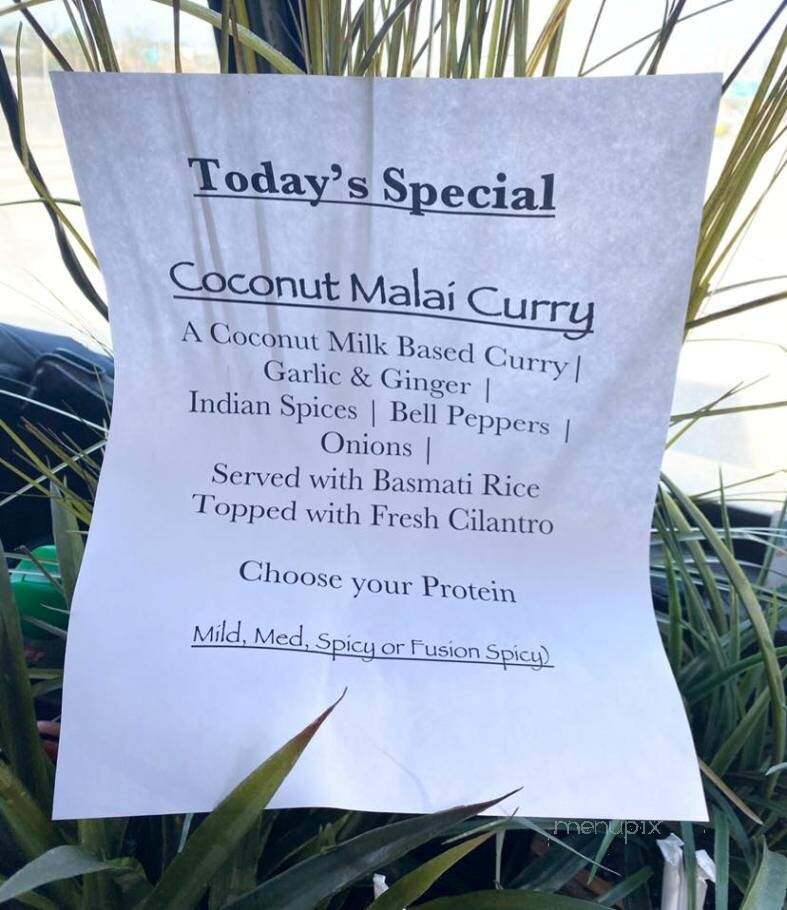 Today's Special
Coconut Malai Curry
A Coconut Milk Based Curry|
Garlic & Ginger |
Indian Spices | Bell Peppers |
Onions |
Served with Basmati Rice
Topped with Fresh Cilantro
Choose your Protein
Mild, Med, Spicy or Fusion Spicy)
menupix